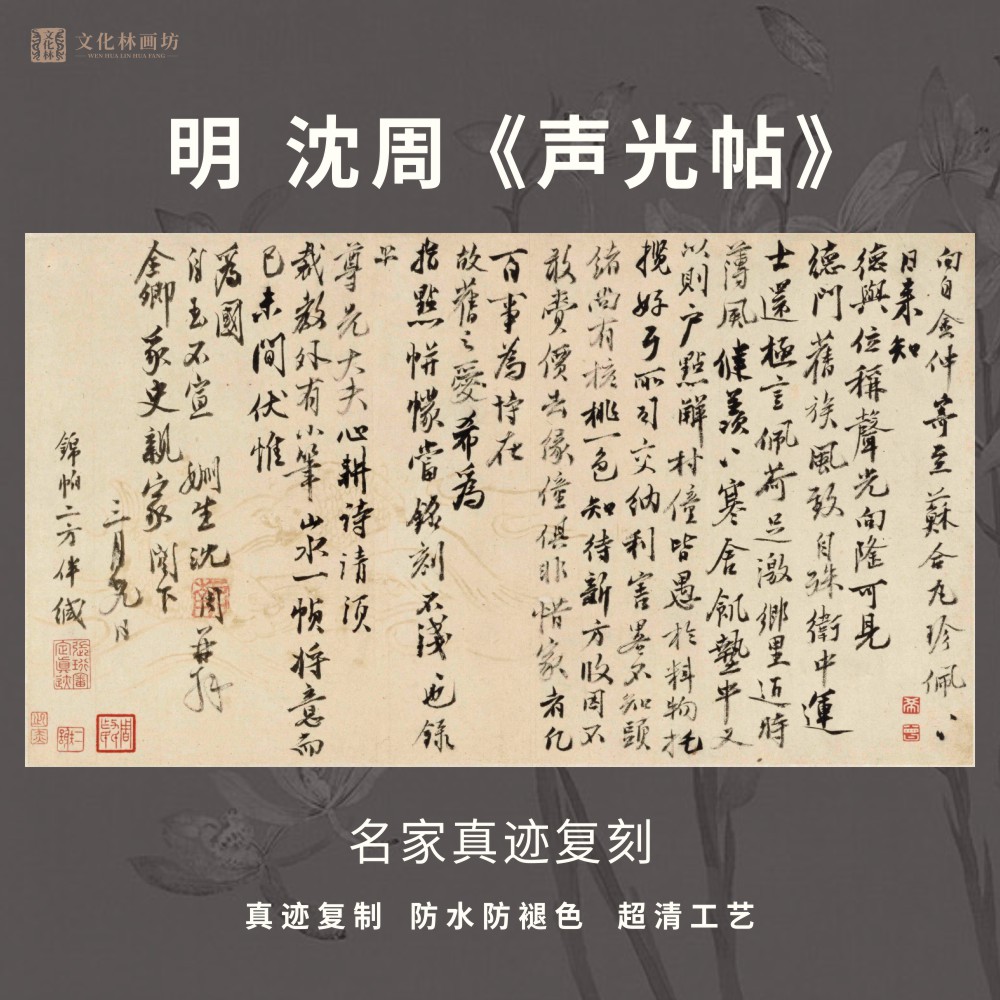 文化林
文化林画坊
WEN HUA LIN HUA FANG
明 沈周《声光帖》
向自金仲寄至蘇合丸珍佩〻
日来知
德與位稱聲光向隆可見
德門舊族風致自殊衛中運
士還極言佩荷足激鄉里近時
薄風健羡〻寒舍飢墊中又
以則户點解村僮皆愚於料物托
攬好了而司交納利害畧不知頭
緒尚有核桃一色知待新方收因不
敢費價去緣僮俱非惜家者凡
百事為恃在
故舊之愛希爲
指點帡幪當銘刻不淺也録
上
尊允大夫心耕詩請須
裁教外有小筆山水一幀将意而
已未間伏惟
爲國
自玉不宣 姻生沈周再拜
全卿冢史親家閣下
三月九日
錦帕二方伴缄
名家真迹复刻
真迹复制 防水防褪色 超清工艺